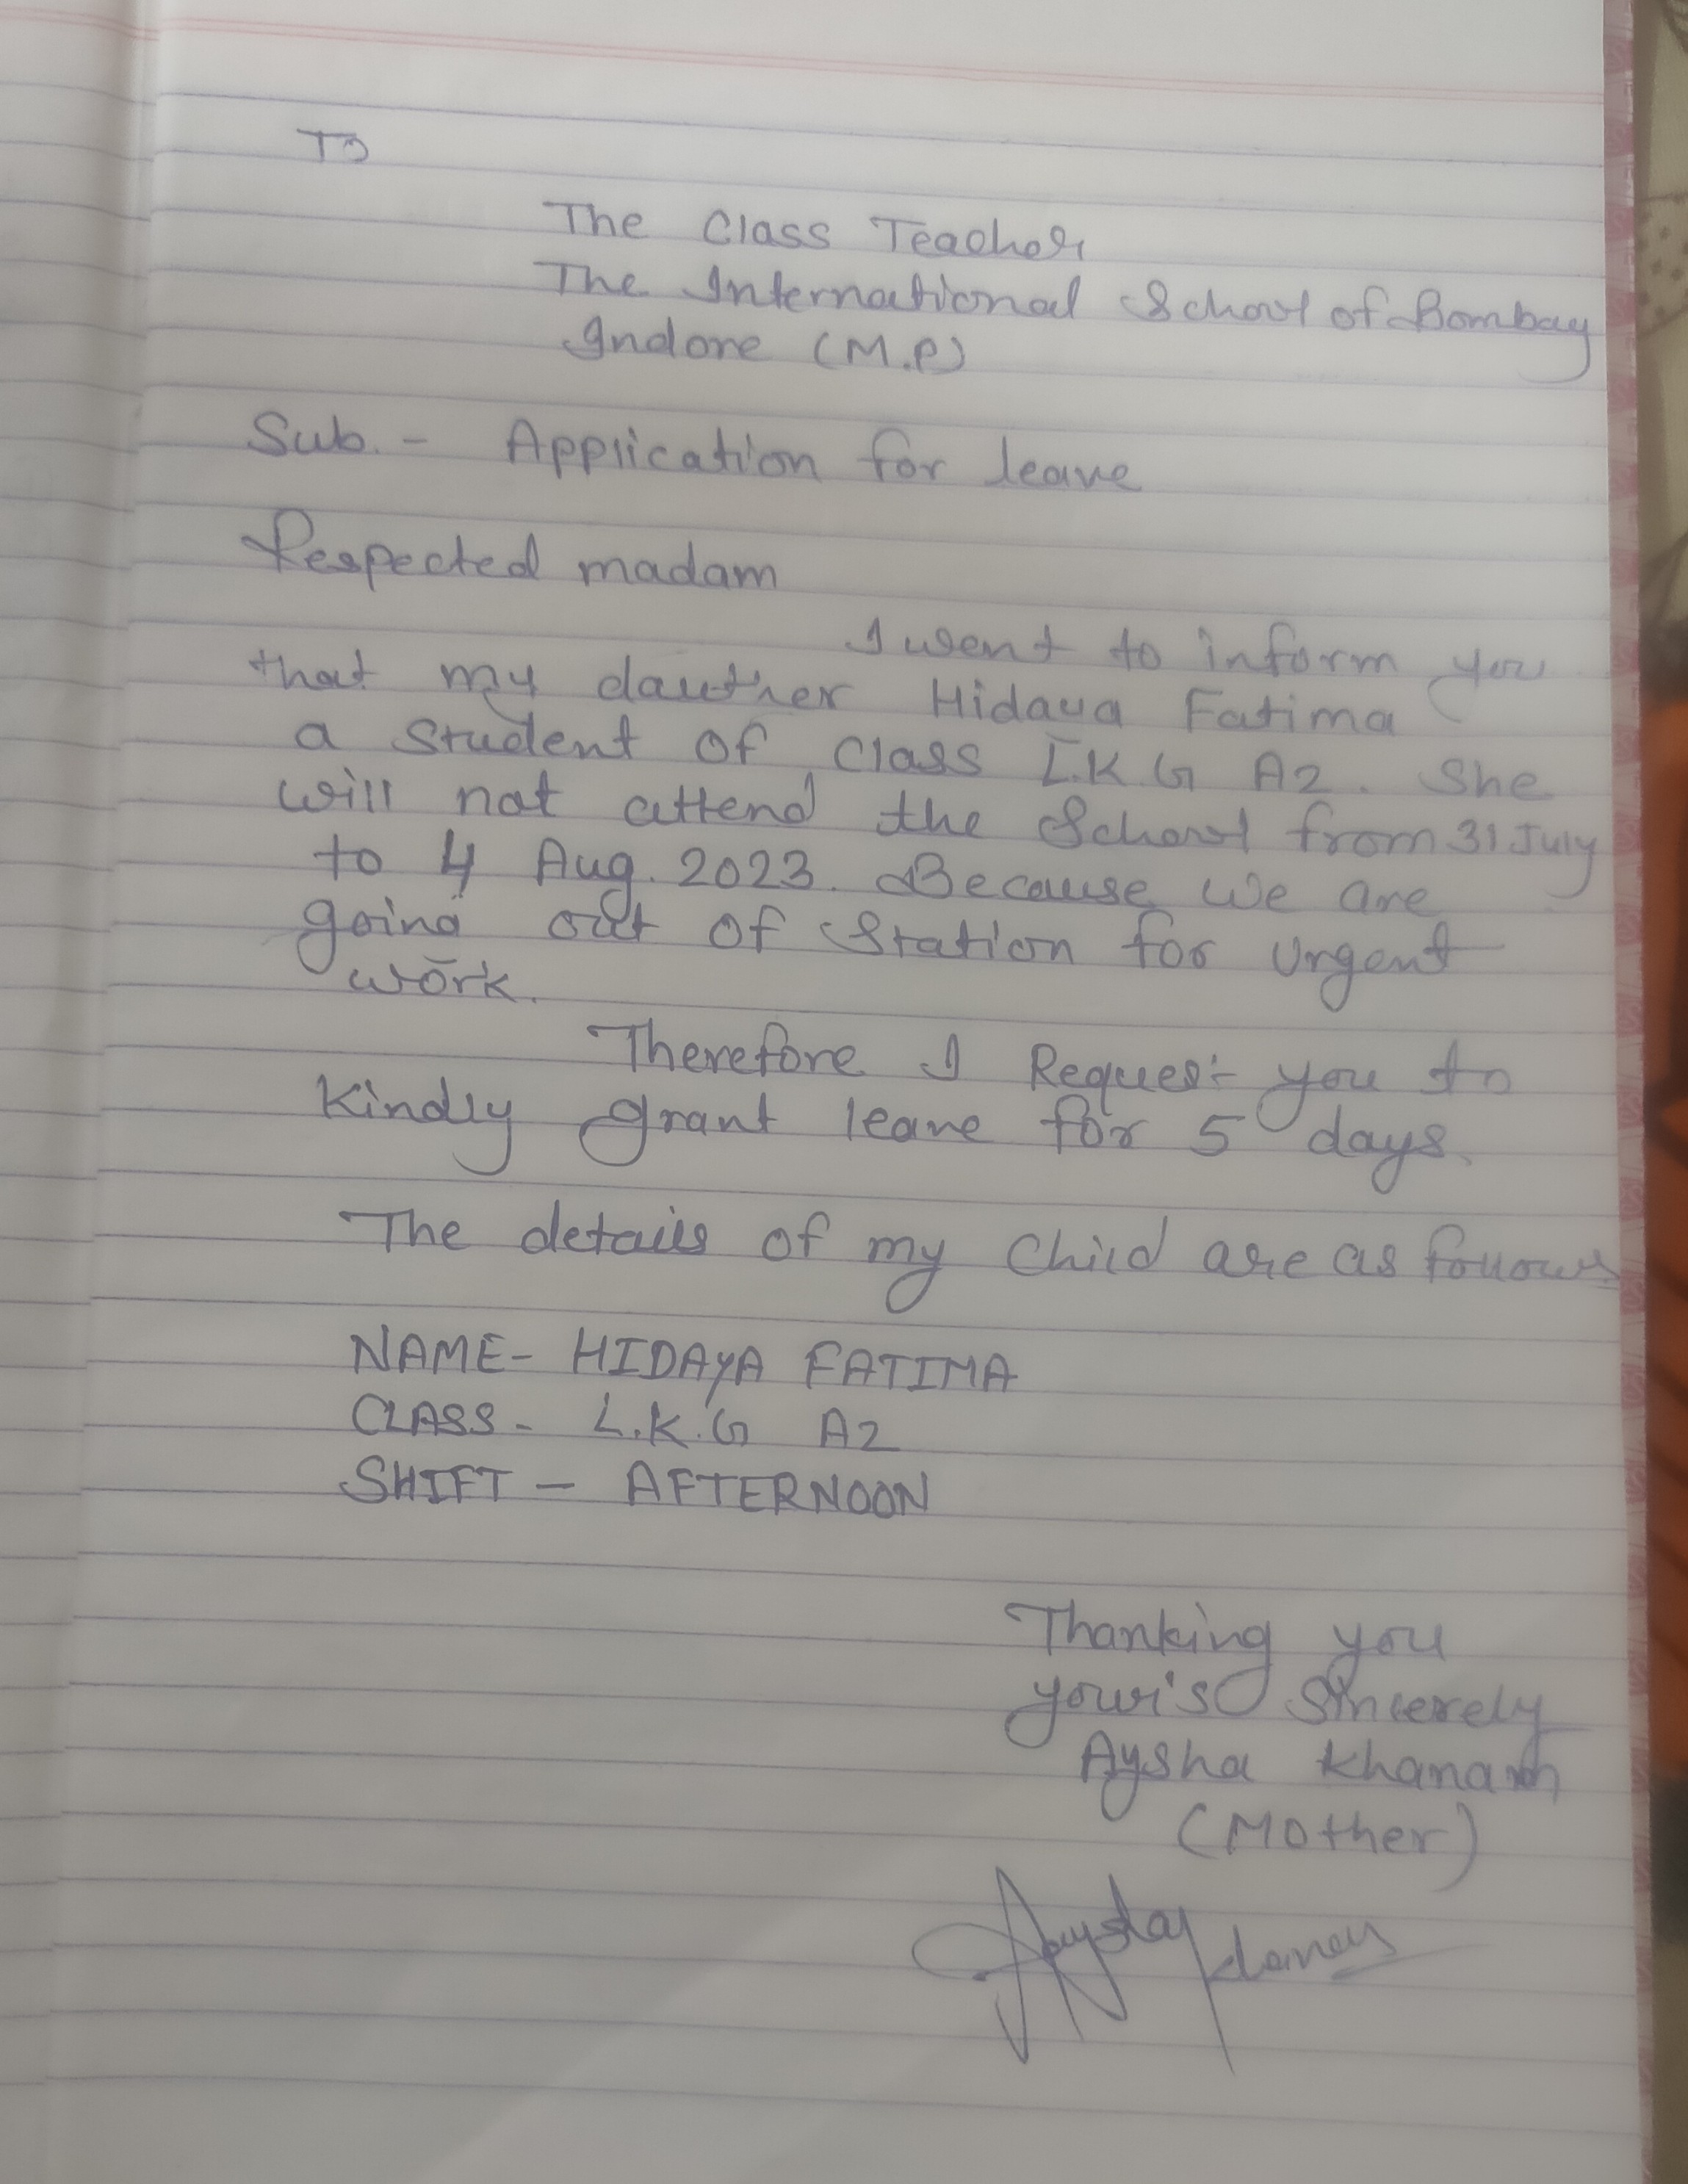 To
The Class Teacher
The International School of Bombay
Indore (M.P)
Sub. - Application for leave
Respected madam
I went to inform you
that my dauther Hidaya Fatima
a Student of Class L.K G A2. She
will not attend the School from 31 July
to 4 Aug. 2023. Because we are
going out of Station for urgent
work.
Therefore I Request you to
Kindly grant leave for 5 days.
The details of my Child are as follows
NAME- HIDAYA FATIMA
CLASS- L.K.G A2
SHIFT - AFTERNOON
Thanking you
your's Sincerely
Aysha Khanam
(Mother)